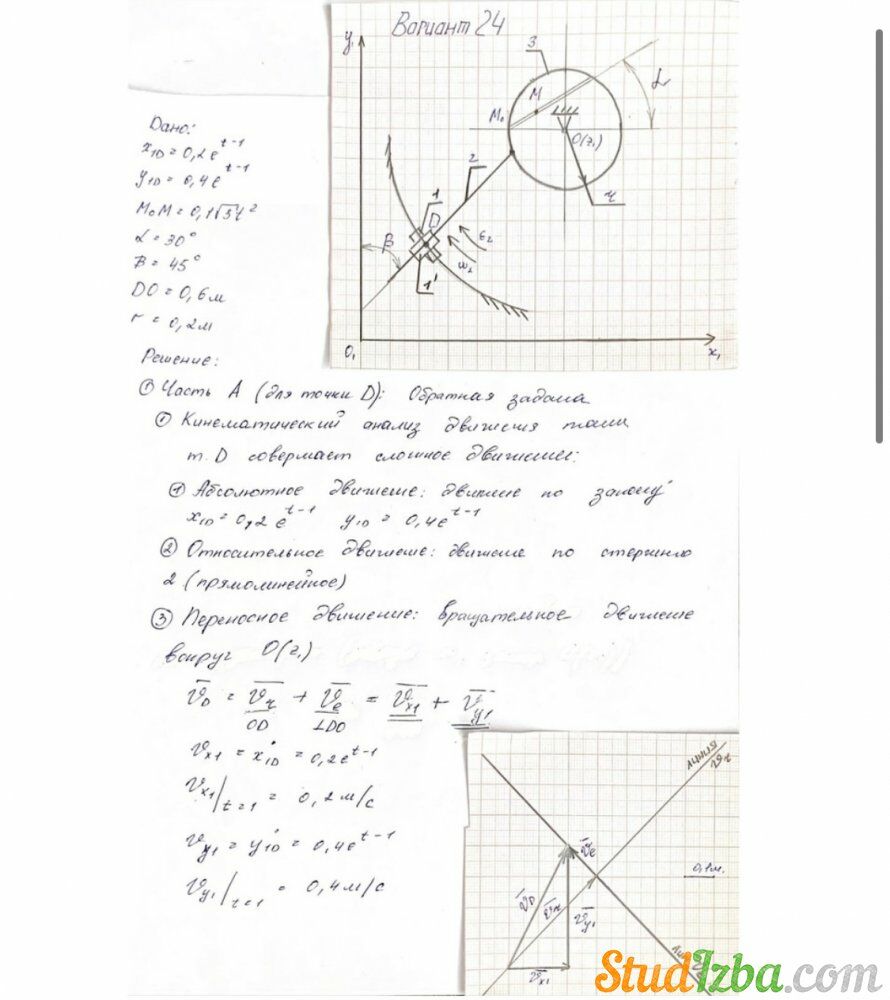 Вариант 24
y₁
3
M
M₀
α
O(z₁)
2
r
1
D
β
ε₂
ω₂
1'
O₁
x₁
Дано:
x1D = 0,2 e^t-1
y1D = 0,4 e^t-1
M₀M = 0,1√3 t²
α = 30°
β = 45°
DO = 0,6 м
r = 0,2 м
Решение:
① Часть А (для точки D): Обратная задача
① Кинематический анализ движения точки
т. D совершает сложное движение:
① Абсолютное движение: движение по закону
x1D = 0,2 e^t-1 y1D = 0,4 e^t-1
② Относительное движение: движение по стержню
2 (прямолинейное)
③ Переносное движение: вращательное движение
вокруг O(z₁)
v̄D = v̄r + v̄e = v̄x1 + v̄y1
OD ⊥DO
vx1 = ẋ1D = 0,2 e^t-1
vx1/t=1 = 0,2 м/с
vy1 = ẏ1D = 0,4 e^t-1
vy1/t=1 = 0,4 м/с
линия
vr
v̄e
0,1м.
v̄D
v̄r
v̄y1
v̄x1
StudIzba.com